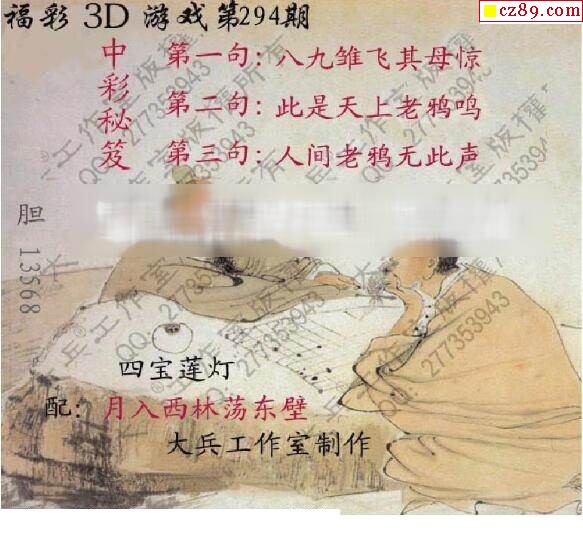 福彩 3D 游戏第294期
cz89.com
中彩秘笈
第一句：八九雏飞其母惊
第二句：此是天上老鸦鸣
第三句：人间老鸦无此声
胆 13568
四宝莲灯
配：月入西林荡东壁
大兵工作室制作
大兵工作室版权所有
QQ:277353943